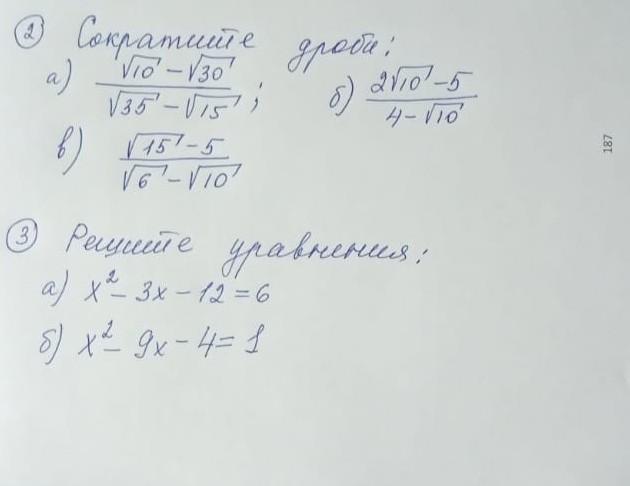 ② Сократите дроби:
а) (√10 − √30)/(√35 − √15); б) (2√10 − 5)/(4 − √10)
в) (√15 − 5)/(√6 − √10)
③ Решите уравнения:
а) x² − 3x − 12 = 6
б) x² − 9x − 4 = 1
187